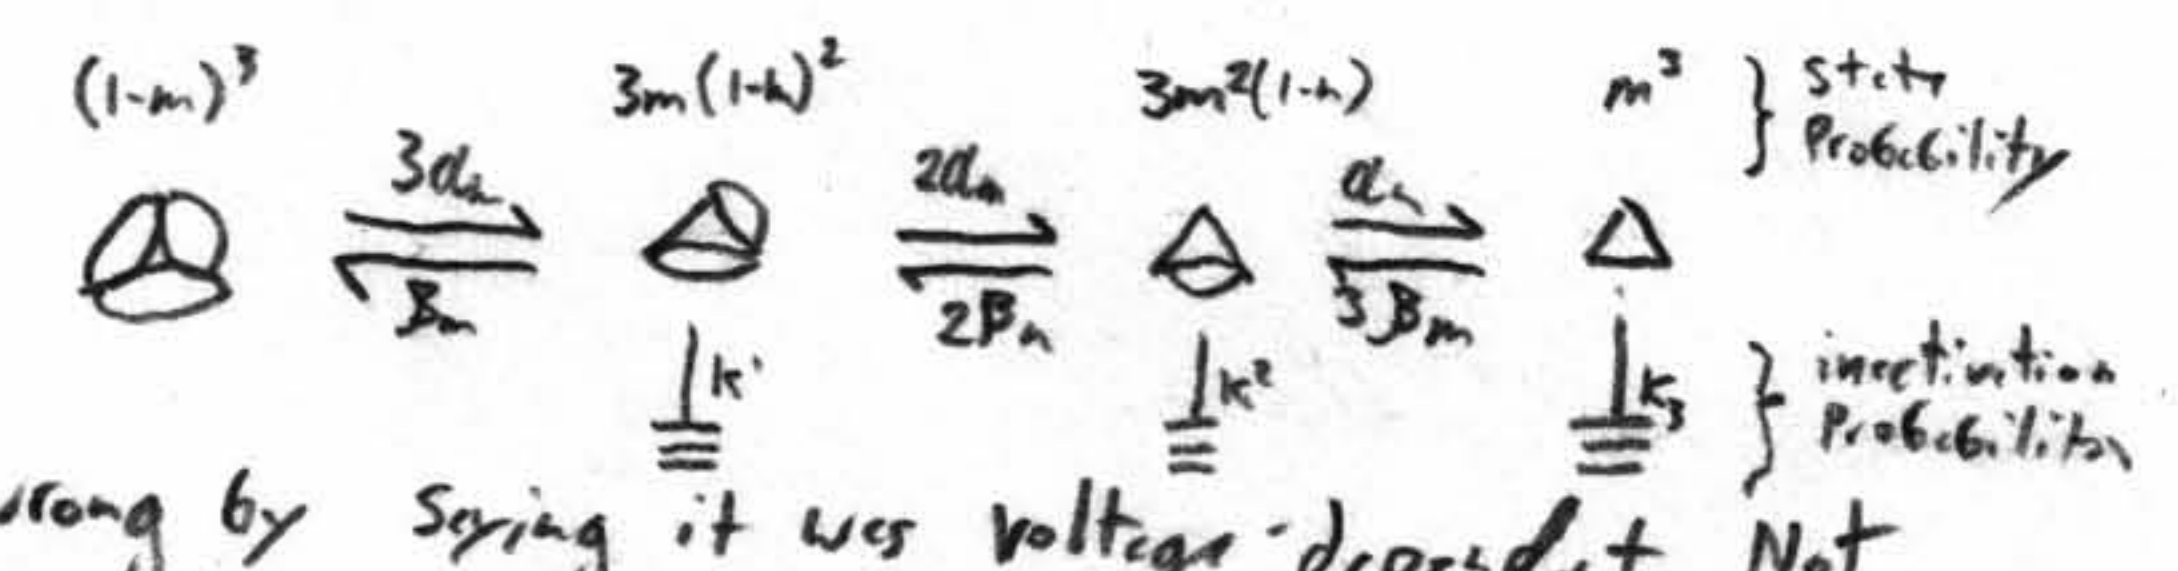 (1-m)³ 3m(1-m)² 3m²(1-m) m³ } State
Probability
3αm 2αm αm
βm 2βm 3βm
k¹ k² k₃ } inactivation
Probability
by saying it was voltage-dependent Not